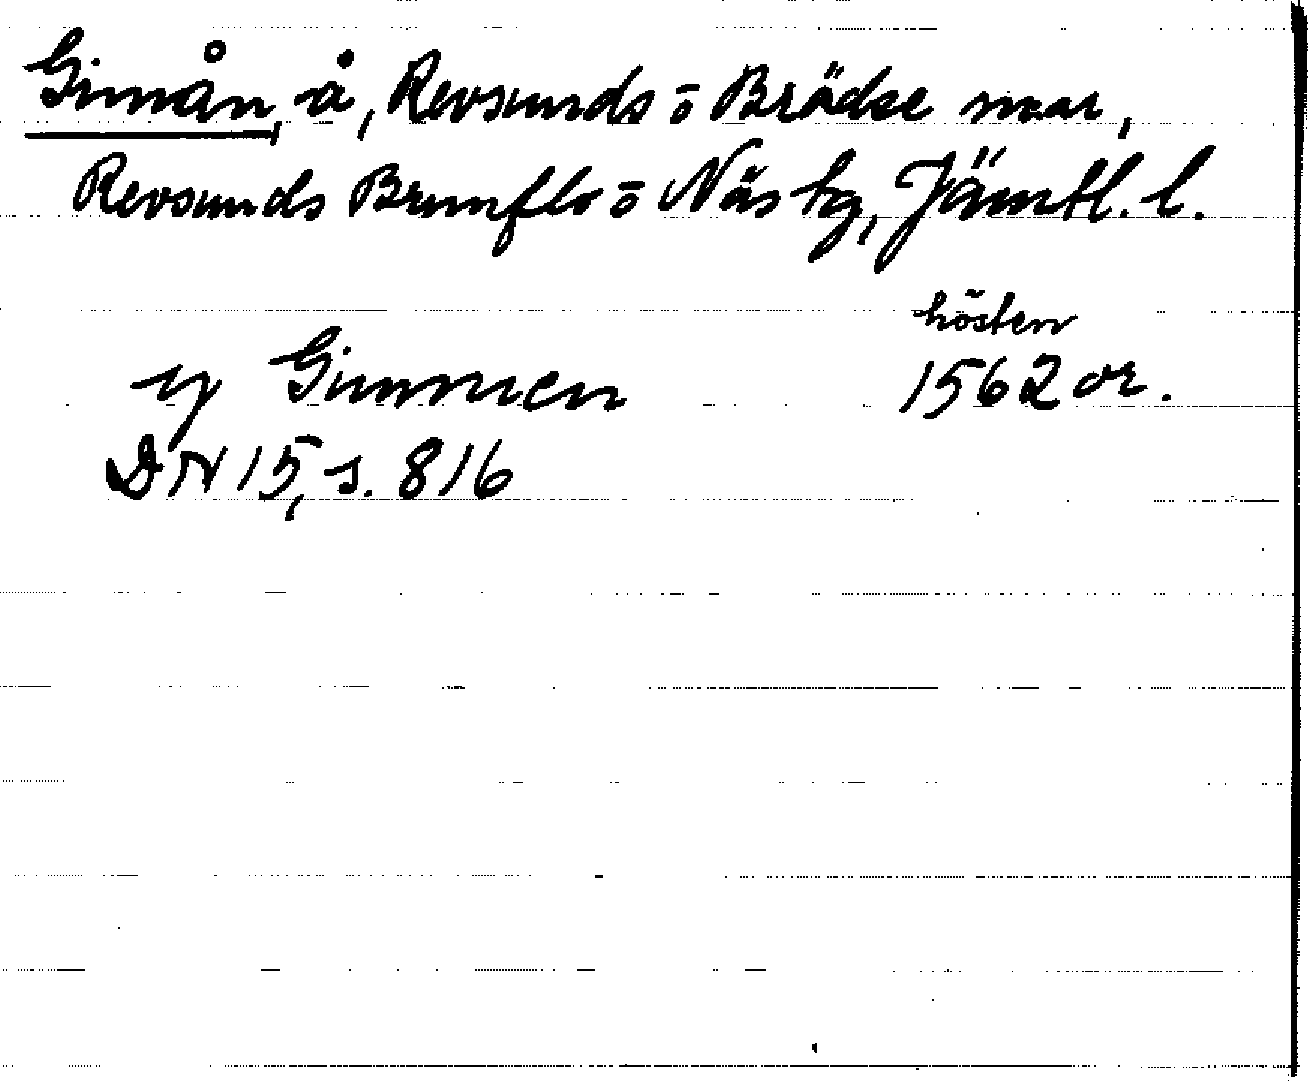 Gimån, å, Revsunds o Bräcke snar,
Revsunds Brunflo o Näs tg, Jämtl. l.
hösten
y Gimmen 1562 or.
DN 15, s. 816